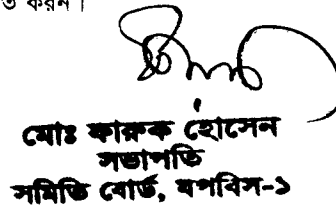 করন।
মোঃ ফারুক হোসেন
সভাপতি
সমিতি বোর্ড, যপবিস-১